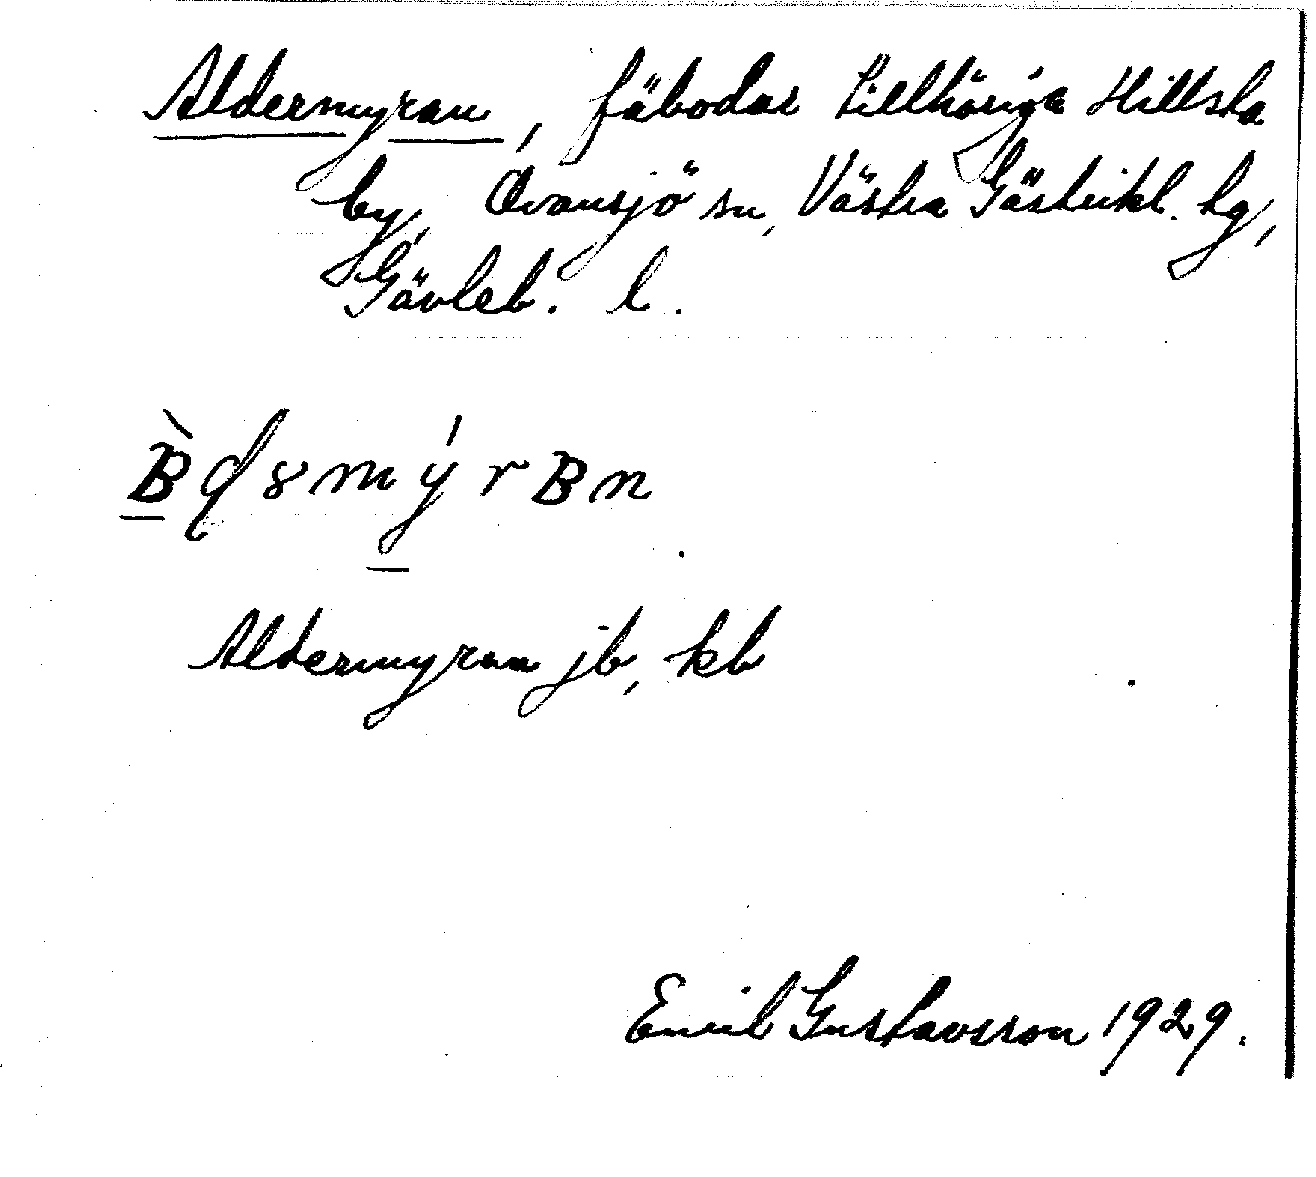 Aldermyran, fäbodar tillhöriga Hillsta
by, Ovansjö sn, Västra Gästrikl. tg,
Gävleb. l.
Aldermyran jb, kb
Emil Gustavsson 1929.